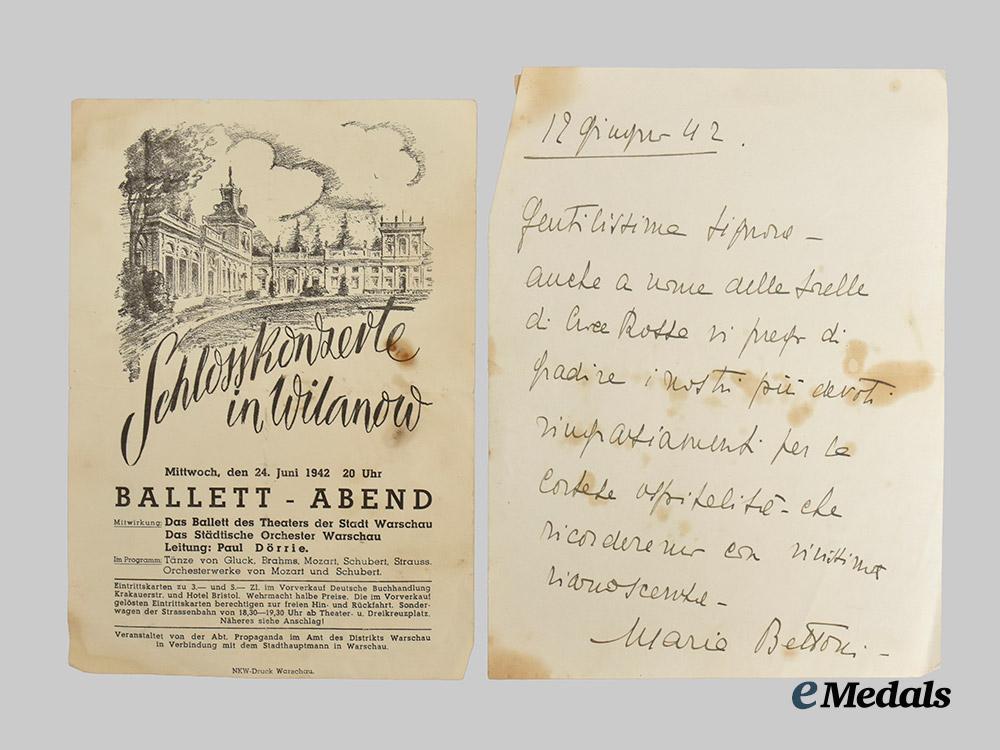 Schlosskonzerte
in Wilanow
Mittwoch, den 24. Juni 1942 20 Uhr
BALLETT - ABEND
Mitwirkung: Das Ballett des Theaters der Stadt Warschau
Das Städtische Orchester Warschau
Leitung: Paul Dörrie.
Im Programm: Tänze von Gluck, Brahms, Mozart, Schubert, Strauss.
Orchesterwerke von Mozart und Schubert.
Eintrittskarten zu 3.— und 5.— Zl. im Vorverkauf Deutsche Buchhandlung
Krakauerstr. und Hotel Bristol. Wehrmacht halbe Preise. Die im Vorverkauf
gelösten Eintrittskarten berechtigen zur freien Hin- und Rückfahrt. Sonder-
wagen der Strassenbahn von 18,30—19,30 Uhr ab Theater- u. Dreikreuzplatz.
Näheres siehe Anschlag!
Veranstaltet von der Abt. Propaganda im Amt des Distrikts Warschau
in Verbindung mit dem Stadthauptmann in Warschau.
NKW-Druck Warschau.
12 giugno 42.
Gentilissima Signora –
anche a nome delle sorelle
di Croce Rossa vi prego di
gradire i nostri più devoti
ringraziamenti per la
cortese ospitalità – che
ricorderemo con vivissima
riconoscenza –
Maria Bettoni –
eMedals